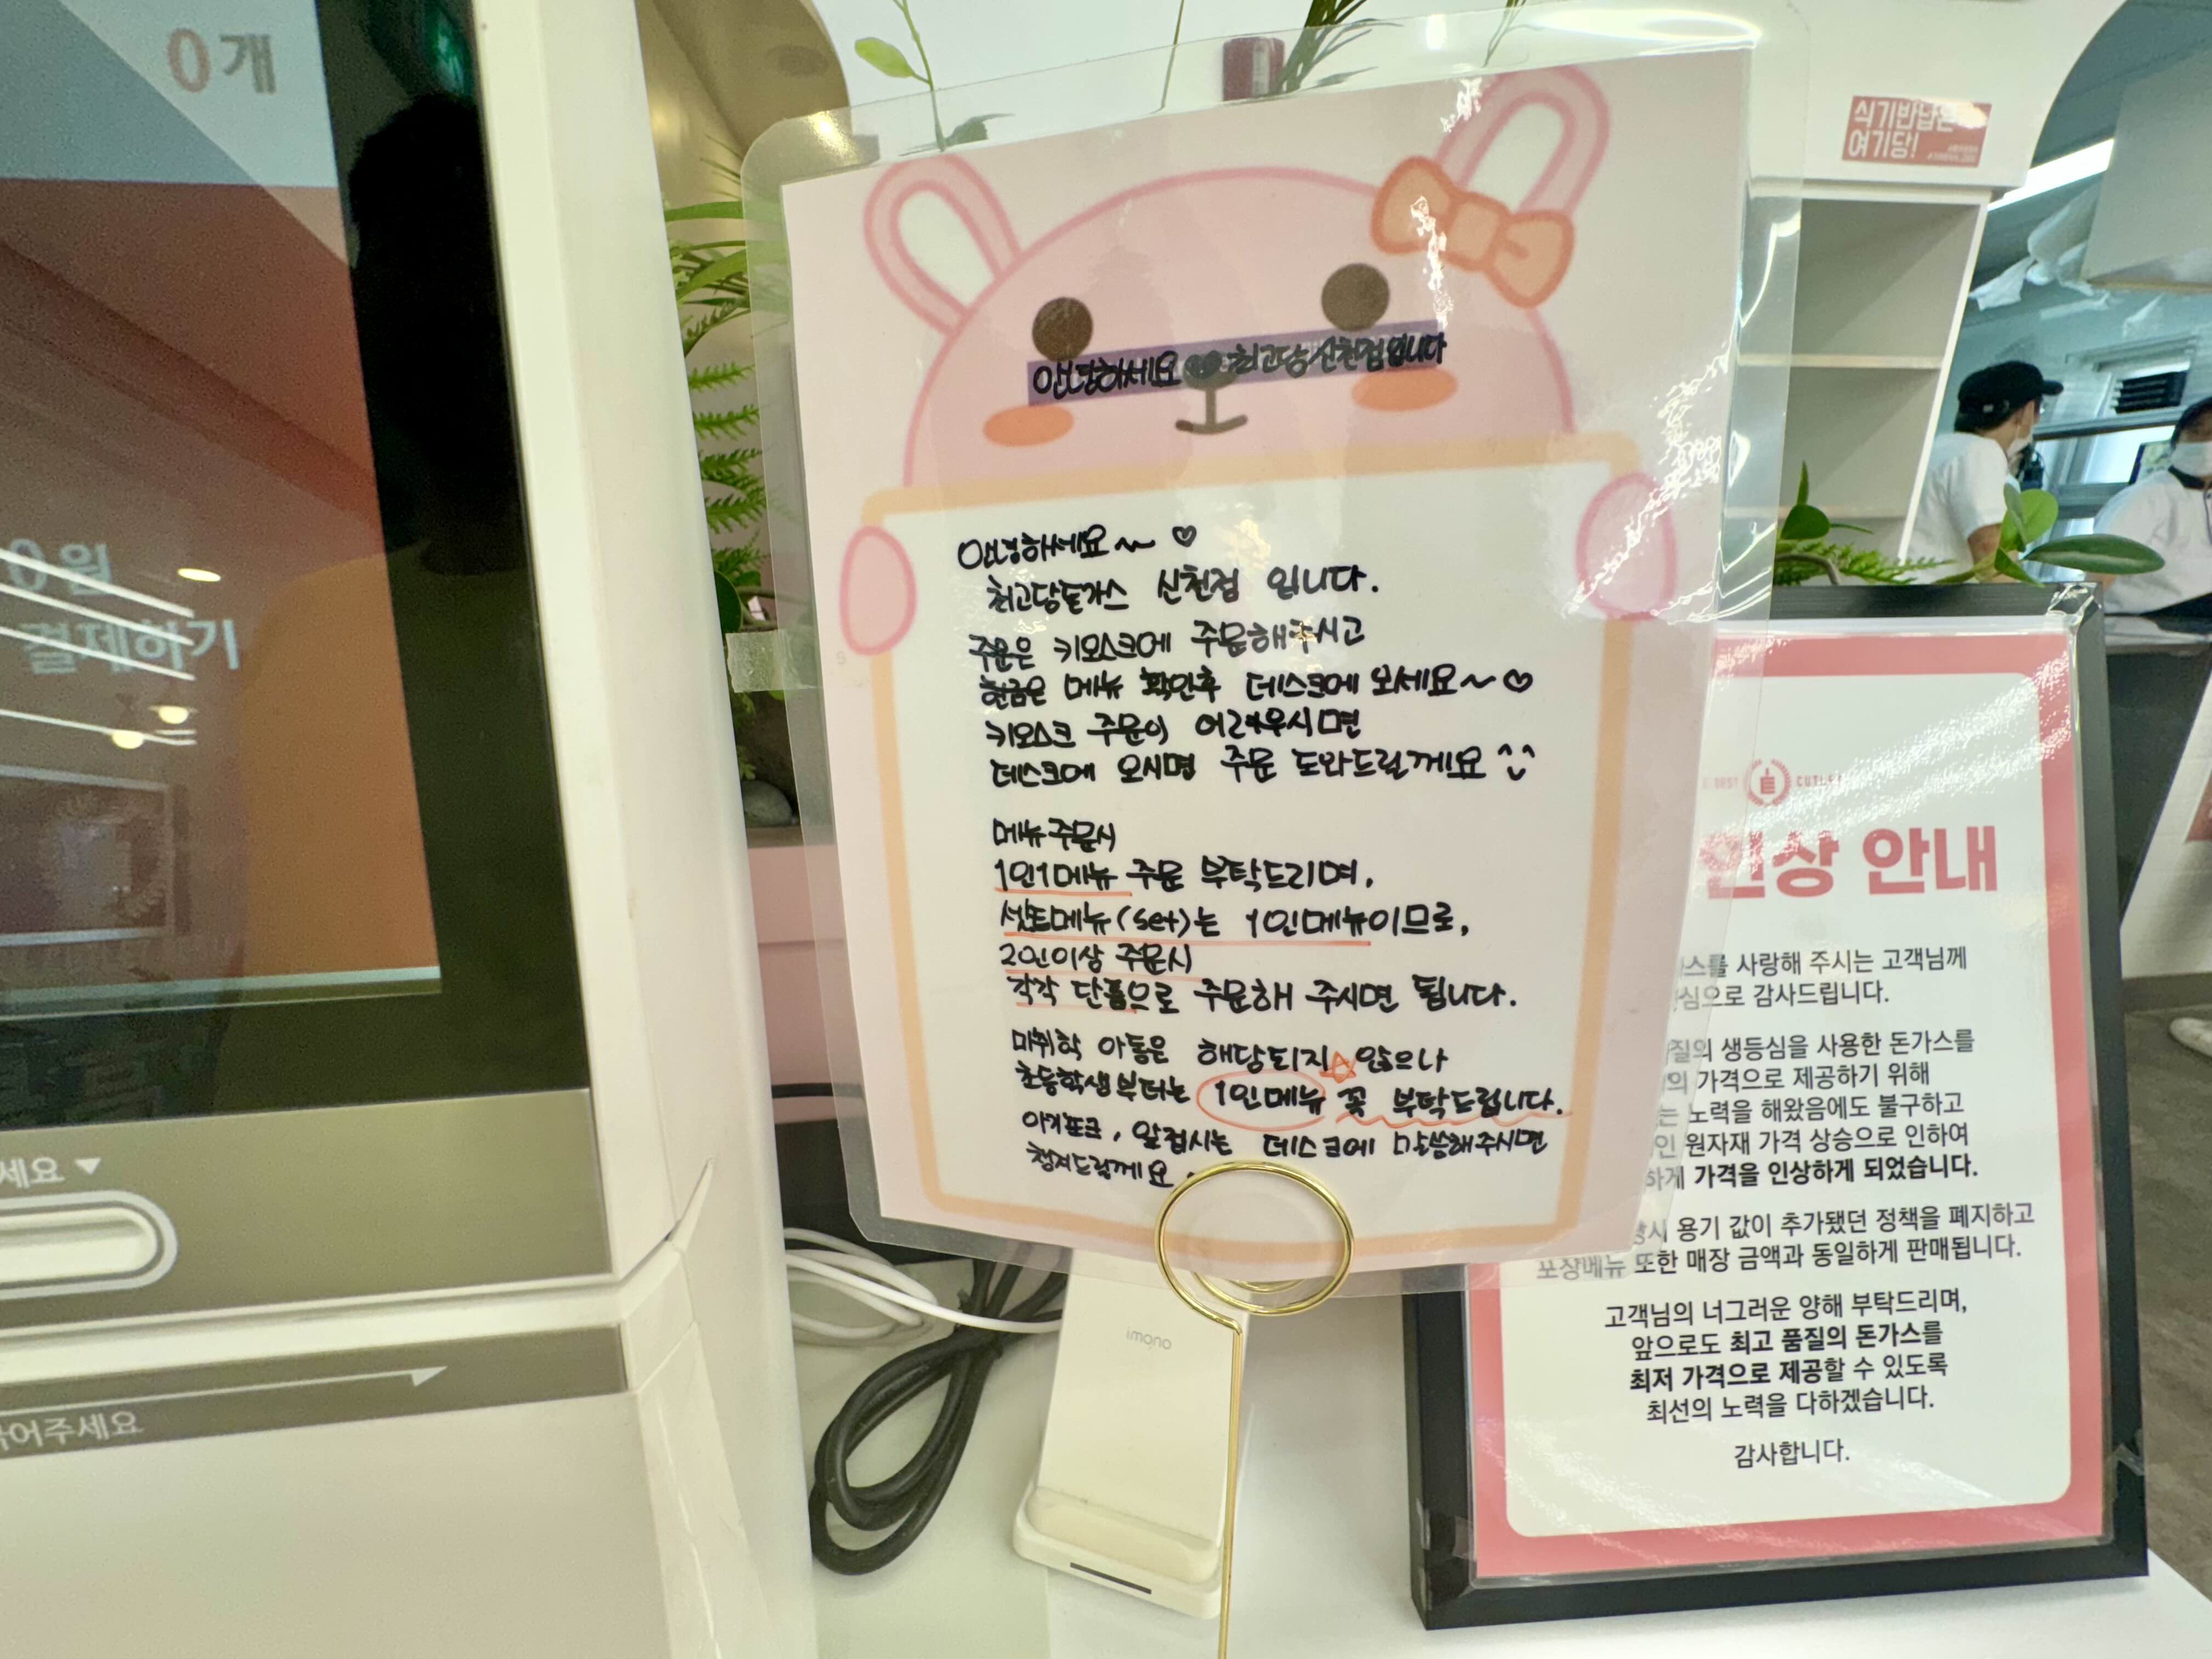 0개
0원
결제하기
세요 ▼
어주세요
식기반납은
여기당!
안녕하세요 최고당 신천점입니다
안녕하세요~ ♡
최고당돈가스 신천점 입니다.
주문은 키오스크에 주문해주시고
현금은 메뉴 확인후 데스크에 오세요~♡
키오스크 주문이 어려우시면
데스크에 오시면 주문 도와드릴께요^^
메뉴주문시
1인1메뉴 주문 부탁드리며,
셋트메뉴(set)는 1인메뉴이므로,
2인이상 주문시
각각 단품으로 주문해 주시면 됩니다.
미취학 아동은 해당되지 않으나
초등학생부터는 1인메뉴 꼭 부탁드립니다.
아기포크, 앞접시는 데스크에 말씀해주시면
챙겨드릴께요.
imono
BEST CUTLET
인상 안내
스를 사랑해 주시는 고객님께
심으로 감사드립니다.
질의 생등심을 사용한 돈가스를
의 가격으로 제공하기 위해
는 노력을 해왔음에도 불구하고
인 원자재 가격 상승으로 인하여
하게 가격을 인상하게 되었습니다.
장시 용기 값이 추가됐던 정책을 폐지하고
포장메뉴 또한 매장 금액과 동일하게 판매됩니다.
고객님의 너그러운 양해 부탁드리며,
앞으로도 최고 품질의 돈가스를
최저 가격으로 제공할 수 있도록
최선의 노력을 다하겠습니다.
감사합니다.